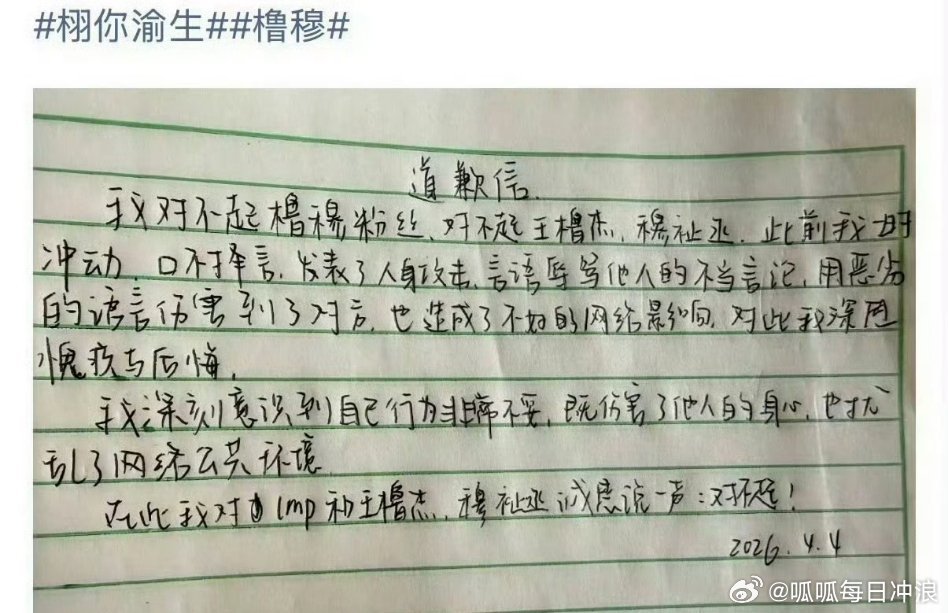 #栩你渝生##橹穆#
道歉信.
我对不起橹穆粉丝、对不起王橹杰、穆祉丞. 此前我一时
冲动、口不择言、发表了人身攻击、言语辱骂他人的不当言论, 用恶劣
的语言伤害到了对方, 也造成了不好的网络影响, 对此我深感
愧疚与后悔,
我深刻意识到自己行为非常不妥, 既伤害了他人的身心, 也扰
乱了网络公共环境.
在此我对 lmp 和王橹杰、穆祉丞诚恳说一声:对不起!
2026.4.4
@呱呱每日冲浪